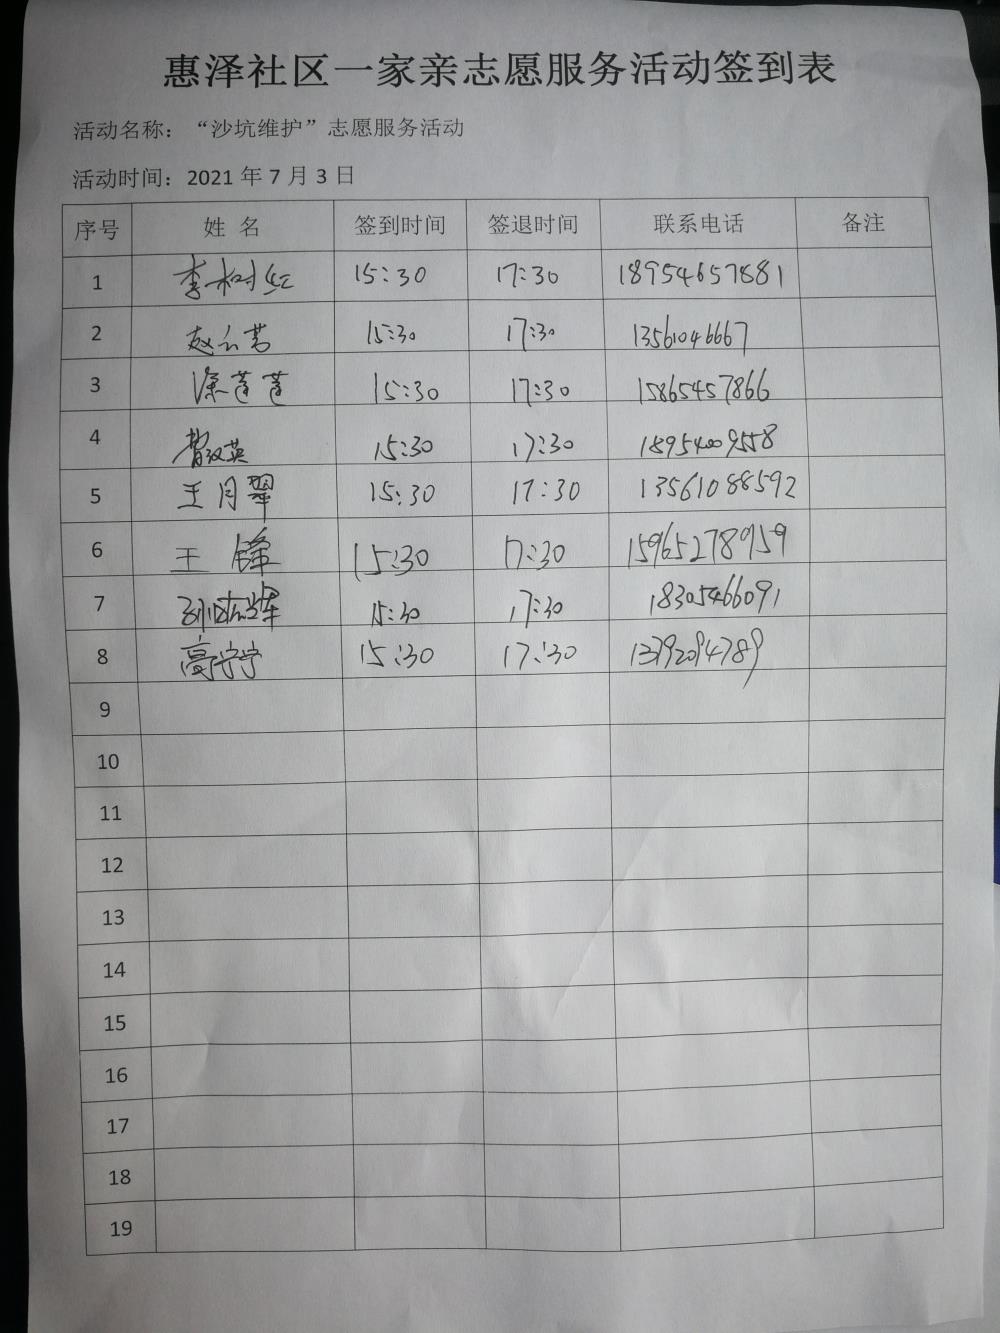 惠泽社区一家亲志愿服务活动签到表
活动名称：“沙坑维护”志愿服务活动
活动时间：2021 年 7 月 3 日
序号 姓 名 签到时间 签退时间 联系电话 备注
1 李树红 15:30 17:30 18954657881
2 赵云茗 15:30 17:30 13561046667
3 涂莲莲 15:30 17:30 15865457866
4 15:30 17:30 18954009558
5 王月翠 15:30 17:30 13561088592
6 王锋 15:30 17:30 15965278959
7 15:30 17:30 18305466091
8 高宁宁 15:30 17:30 13792094789
9
10
11
12
13
14
15
16
17
18
19